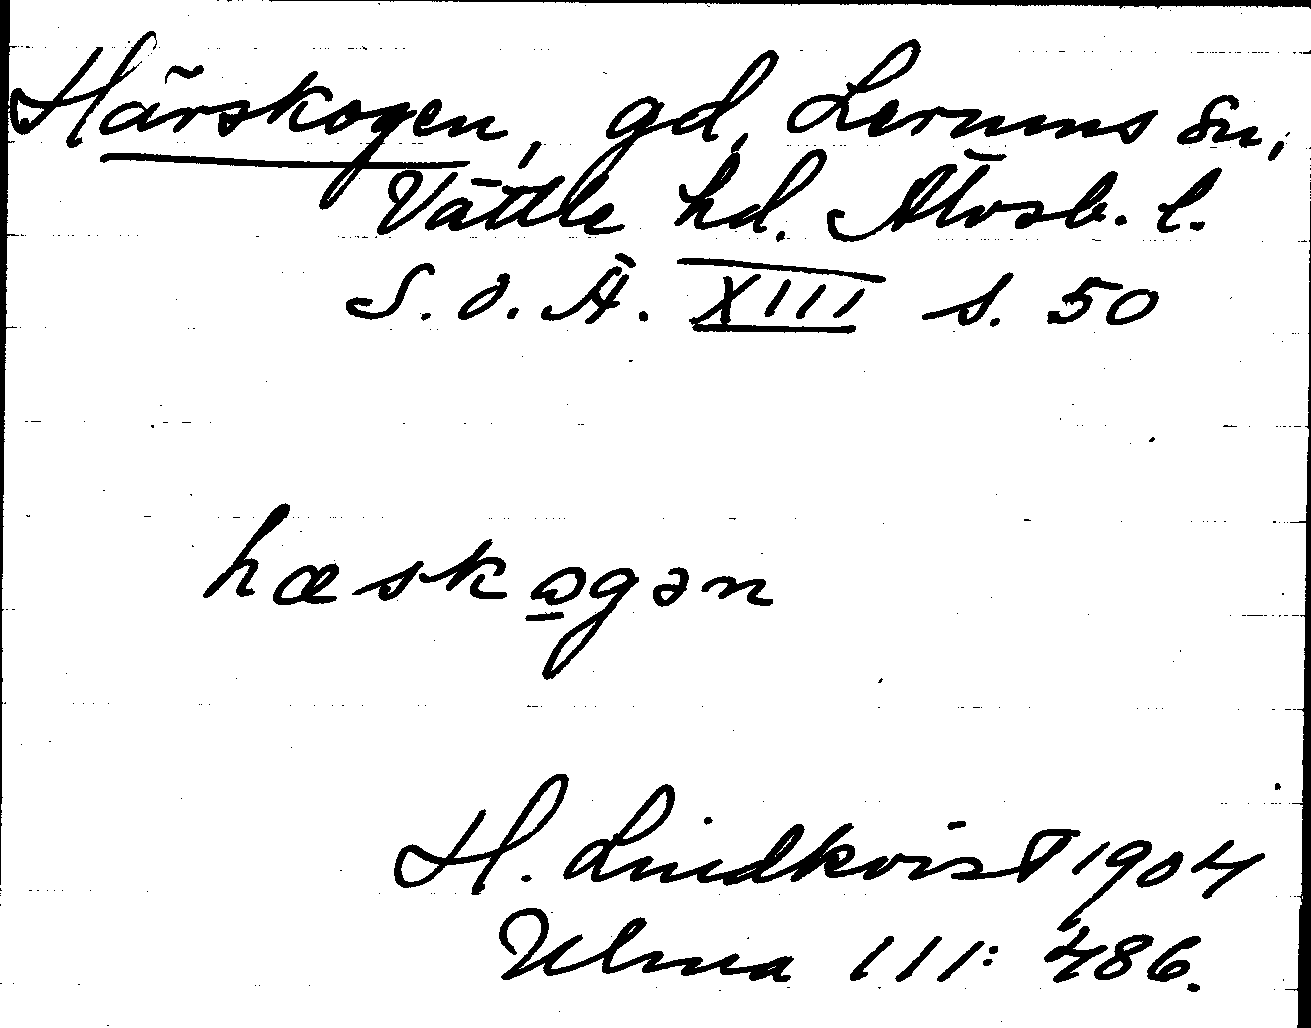 Härskogen, gd, Lerums sn,
Vättle hd. Älvsb. l.
S. O. Ä. XIII s. 50
hæskɔgən
H. Lindkvist 1904
Ulma 111: 486.